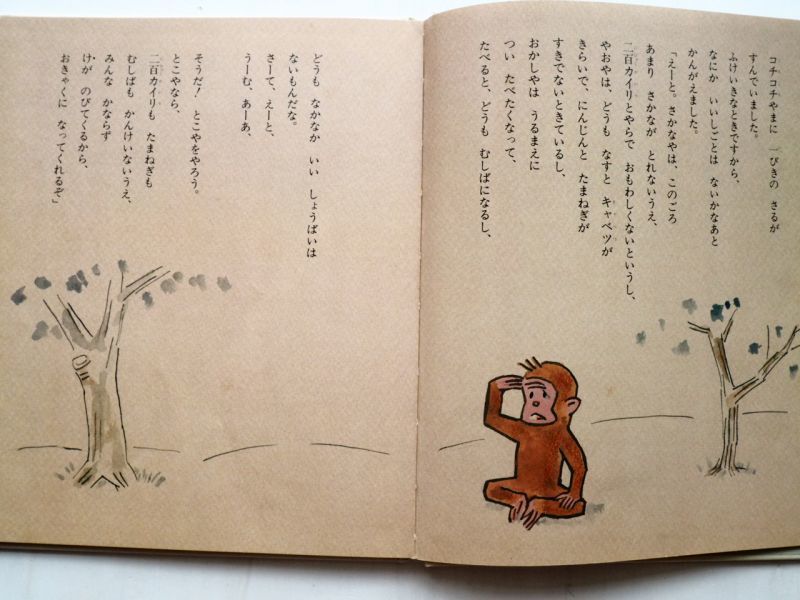 コチコチやまに 一ぴきの さるが
すんでいました。
ふけいきなときですから、
なにか いいしごとは ないかなあと
かんがえました。
「えーと。さかなやは、このごろ
あまり さかなが とれないうえ、
二百カイリとやらで おもわしくないというし、
やおやは、どうも なすと キャベツが
きらいで、にんじんと たまねぎが
すきでないときているし、
おかしやは うるまえに
つい たべたくなって、
たべると、どうも むしばになるし、
どうも なかなか いい しょうばいは
ないもんだな。
さーて、えーと、
うーむ、あーあ、
そうだ! とこやをやろう。
とこやなら、
二百カイリも たまねぎも
むしばも かんけいないうえ、
みんな かならず
けが のびてくるから、
おきゃくに なってくれるぞ」